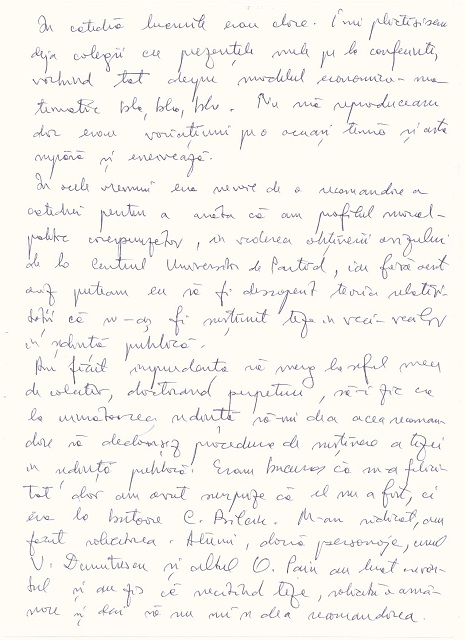 În catedră lucrurile erau clare. Îmi plictisisem
deja colegii cu prezențele mele pe la conferințe,
vorbind tot despre modelul economico-ma-
tematic bla, bla, bla. Nu mă reproduceam
dar erau variațiuni pe o aceași temă și asta
supără și enervează.
În acele vremuri era nevoie de o recomandare a
catedrei pentru a arăta că am profilul moral-
politic corespunzător, în vederea obținerii avizului
de la Centrul Universitar de Partid, iar fără acest
aviz puteam eu să fi descoperit teoria relativi-
tății că n-aș fi susținut teza în vecii-vecilor
în ședință publică.
Am făcut imprudența să merg la șeful meu
de catedră, doctorand perpetuu, să-i zic ca
la următoarea ședință să-mi dea acea recoman
dare să declanșez procedura de susținere a tezei
în ședință publică. Eram bucuros că m-a felici-
tat dar am avut surpriza că el nu a fost, ci
era la butoane C. M-am ridicat, am
făcut solicitarea. Atunci, două personaje, unul
V. Dumitrescu și altul O. Păun au luat cuvân-
tul și au zis că necitind teza, solicită amâ-
nare și deci să nu mi se dea recomandarea.